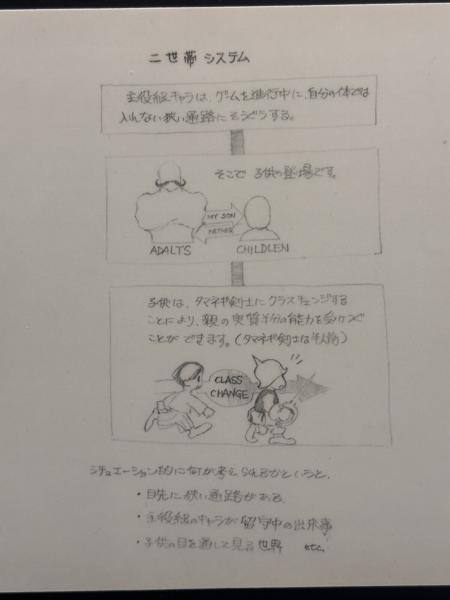 二世帯システム
主役級キャラは、ゲームを進行中に、自分の体では
入れない狭い通路にそうぐうする。
そこで 子供の登場です。
MY SON
FATHER
ADALTS
CHILDLEN
子供は、タマネギ剣士にクラスチェンジする
ことにより、親の実質半分の能力を受けつぐ
ことができます。(タマネギ剣士は半人前)
CLASS
CHANGE
シチュエーション的に何が考えられるかというと、
・目先に狭い通路がある
・主役級のキャラが留守中の出来事
・子供の目を通して見る世界 etc.